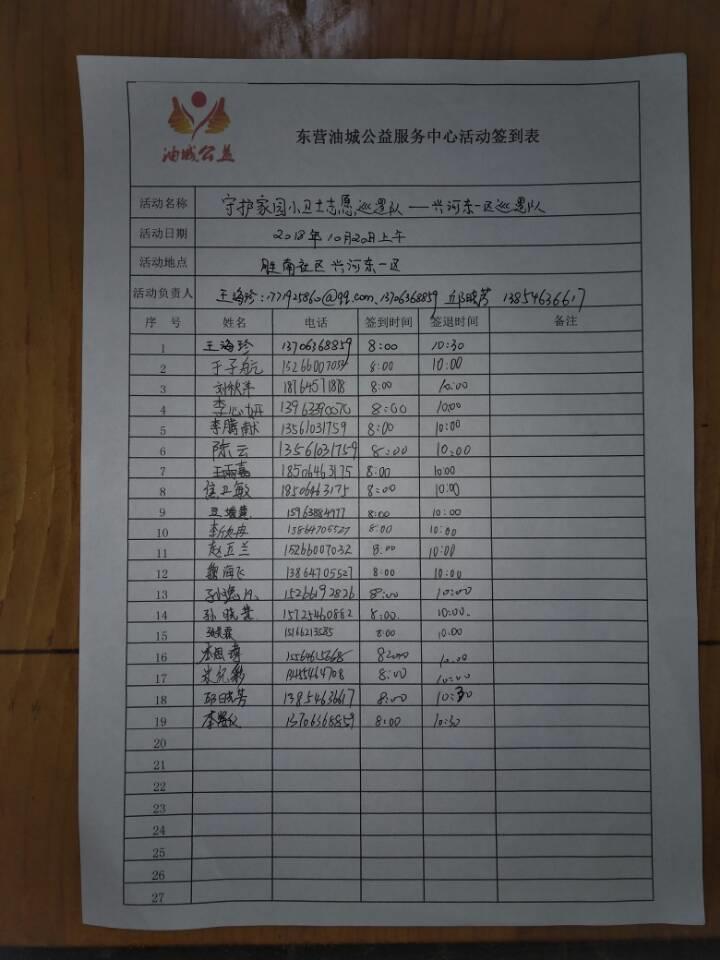 油城公益
东营油城公益服务中心活动签到表
活动名称 守护家园小卫士志愿巡逻队——兴河东一区巡逻队
活动日期 2018年10月20日上午
活动地点 胜南社区兴河东一区
活动负责人 王海珍:1771925860@qq.com 13706368859 邱晓芳 13854636617
序 号 姓名 电话 签到时间 签退时间 备注
1 王海珍 13706368859 8:00 10:30
2 于子航 15266007034 8:00 10:00
3 刘秋萍 18764571818 8:00 10:00
4 李心妍 13963390070 8:00 10:00
5 李腾献 13561031759 8:00 10:00
6 陈云 13561031759 8:00 10:00
7 王雨嘉 18506463175 8:00 10:00
8 焦卫敏 18506463175 8:00 10:00
9 15963884977 8:00 10:00
10 李欣冉 13864705527 8:00 10:00
11 赵正兰 15266007032 8:00 10:00
12 魏海飞 13864705527 8:00 10:00
13 15266192826 8:00 10:00
14 孙晓燕 15725460882 8:00 10:00
15 15166213585 8:00 10:00
16 10:00
17 8:00 10:00
18 邱晓芳 13854636617 8:00 10:30
19 13706368859 8:00 10:30
20
21
22
23
24
25
26
27